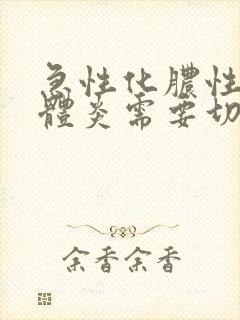 急性化膿性
體炎需要切
余香余香